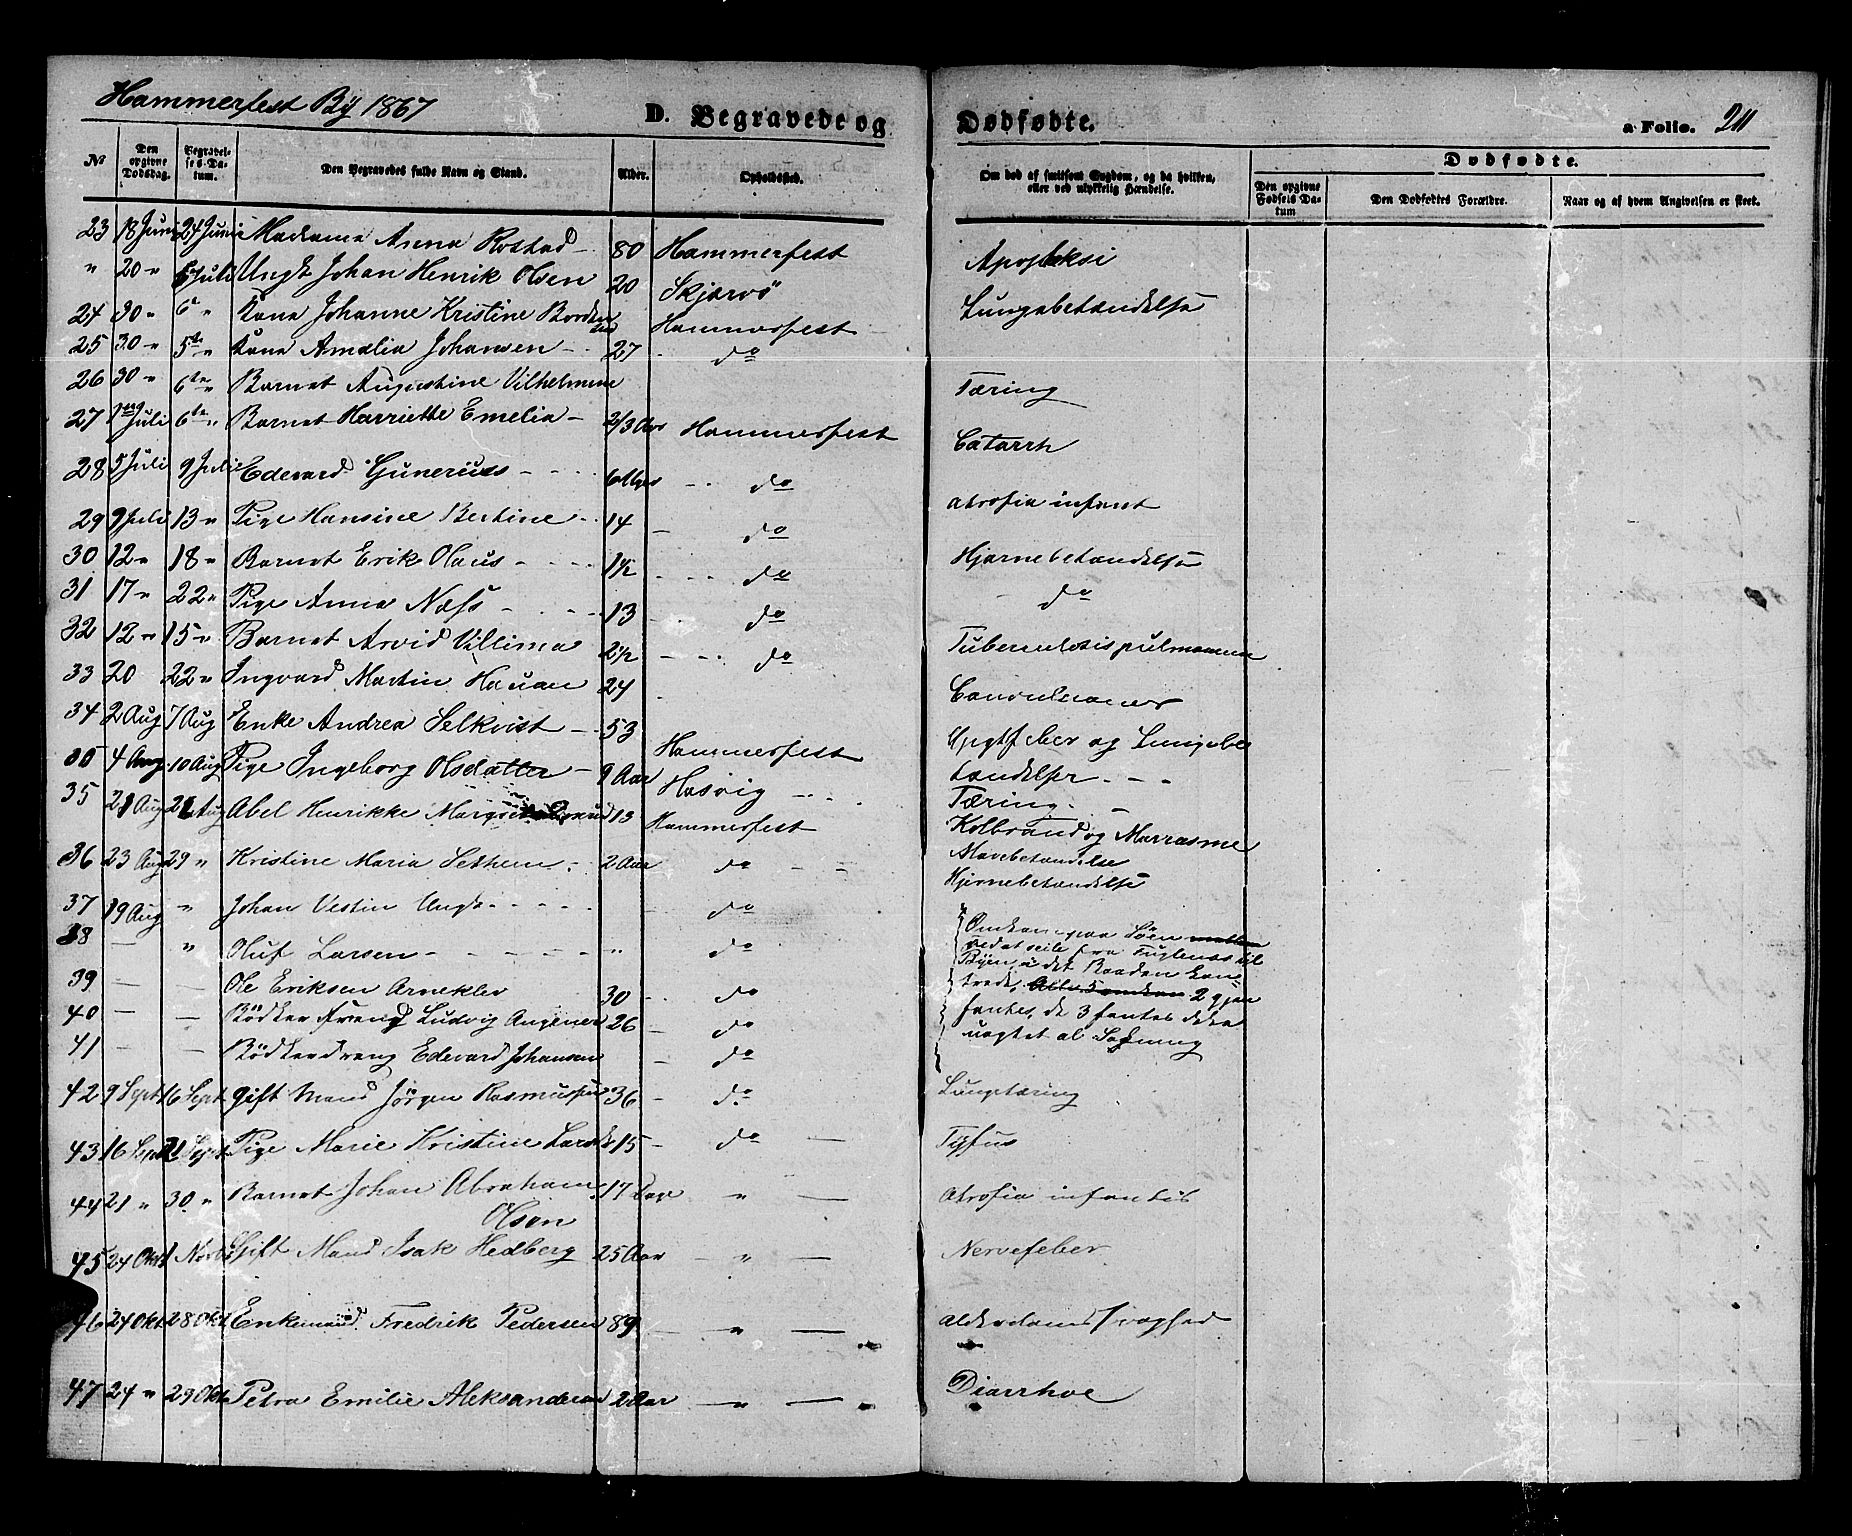 Hammerfest By 1867
D. Begravede og
Dødfødte.
a Folio. 211
No
Den opgivne Dødsdag.
Begravelses-Datum.
Den Begravedes fulde Navn og Stand.
Alder.
Opholdssted.
Om død af smitsom Sygdom, og da hvilken, eller ved ulykkelig Hændelse.
Dødfødte.
Den opgivne Fødsels Datum
Den Dødfødtes Forældre.
Naar og af hvem Angivelsen er skeet.
23 18 Juni 24 Juni Madame Anna Rostad 80 Hammerfest Apopleksi
" 20 " 5 Juli Ungk Johan Henrik Olsen 20 Skjærvö
24 30 " 6 " Kone Johanne Kristine Hammerfest Lungebetændelse
25 30 " 5te " Kone Amalia Johansen 27 do
26 30 " 6te " Barnet Augustine Vilhelmine Tæring
27 1 Juli 6te " Barnet Harriette Emelia 2/3 Aar Hammerfest Catarrh
28 5 Juli 9 Juli Edevard Gunerius 6 do
29 9 Juli 13 " Pige Hansine Bertine 14 do atrofia infant
30 12 " 18 " Barnet Erik Olaus 1½ do Hjernebetændelse
31 17 " 22 " Pige Anna Næss 13 do do
32 12 " 15 " Barnet Arvid Villima 2½ do Tuberculosis pulmonum
33 20 22 " Ingvard Martin Hauan 24 Convulsioner
34 2 Aug 7 Aug Enke Andrea Selkvist 53 Hammerfest feber og Lungebe
35 4 Aug 10 Aug Pige Ingeborg Olsdatter 9 Aar Hasvig tændelse
35 21 Aug 26 Aug Abel Henrikke 13 Hammerfest Tæring.
Kolbrand og Marrasme
36 23 Aug 29 " Kristine Maria Sethem 2 Aar do Mavebetændelse
Hjernebetændelse
37 19 Aug " Johan Vestin Ungk. do
38 " Oluf Larsen " do
39 Ole Eriksen Arneklev 30 do
40 Bödker Ludvig 26 do
41 Bödkerdreng Edevard Johansen do
Omkom paa Söen
ved at seile fra Fuglenæs til
Byen, i det Baaden
2 gjen
fantes, de 3 fantes ikke
uagtet al
42 9 Sept 16 Sept gift Mand Jörgen Rasmussen 36 do Lungetæring
43 16 Sept 21 Sept Pige Marie Kristine 15 do Tyfus
44 21 " 30 " Barnet Johan Abraham 17 Dage " Atrofia infantis
Olsen
45 24 Okt 1 Nov Gift Mand Isak Hedberg 25 Aar " Nervefeber
46 24 Okt 28 Okt Enkemand Fredrik Pedersen 89 " Alderdomssvaghed
47 24 " 29 Okt Petra Emilie Aleksandersen 2 Aar " Diarrhoe